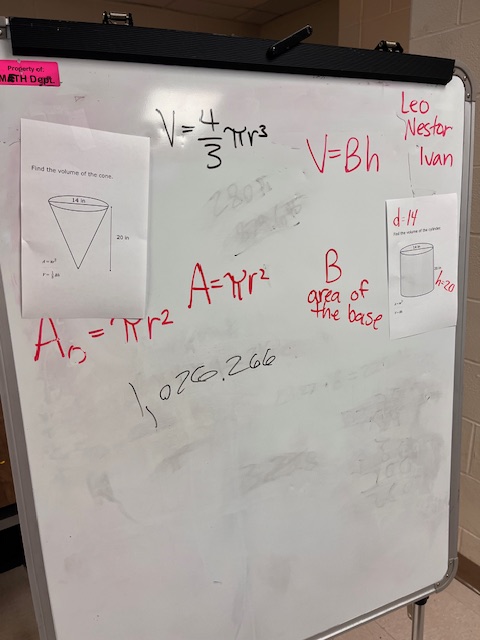 Property of:
MATH Dept.
V=4/3πr³
Leo
Nestor
Ivan
V=Bh
Find the volume of the cone.
14 in
20 in
d=14
Find the volume of the cylinder.
14 in
h=20
A=πr²
B
area of
the base
= πr²
1,026.266